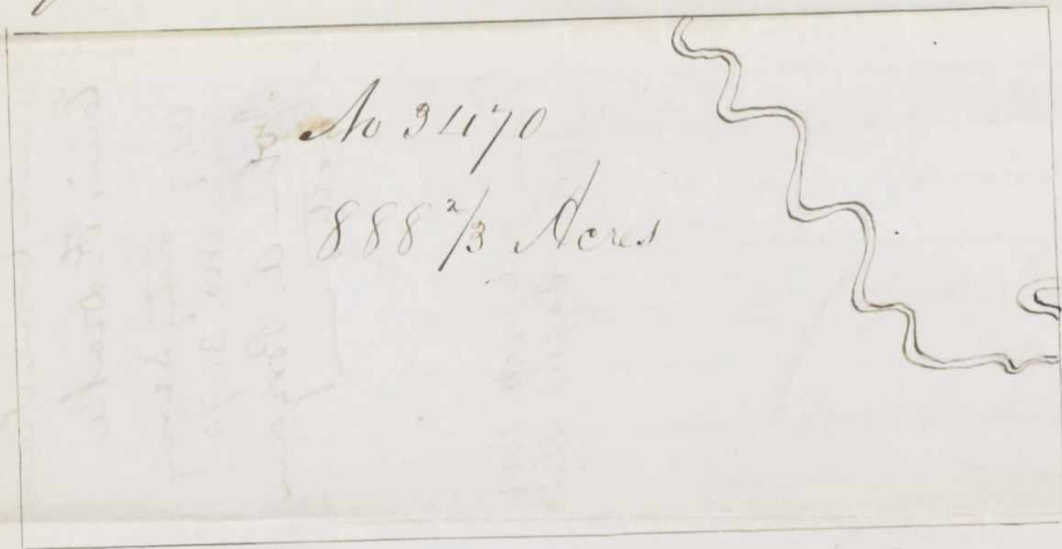 No 3470
888 2/3 Acres